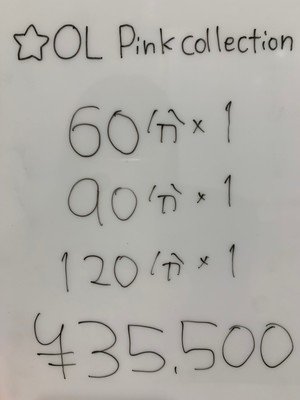 ☆OL Pink collection
60分×1
90分×1
120分×1
¥35.500